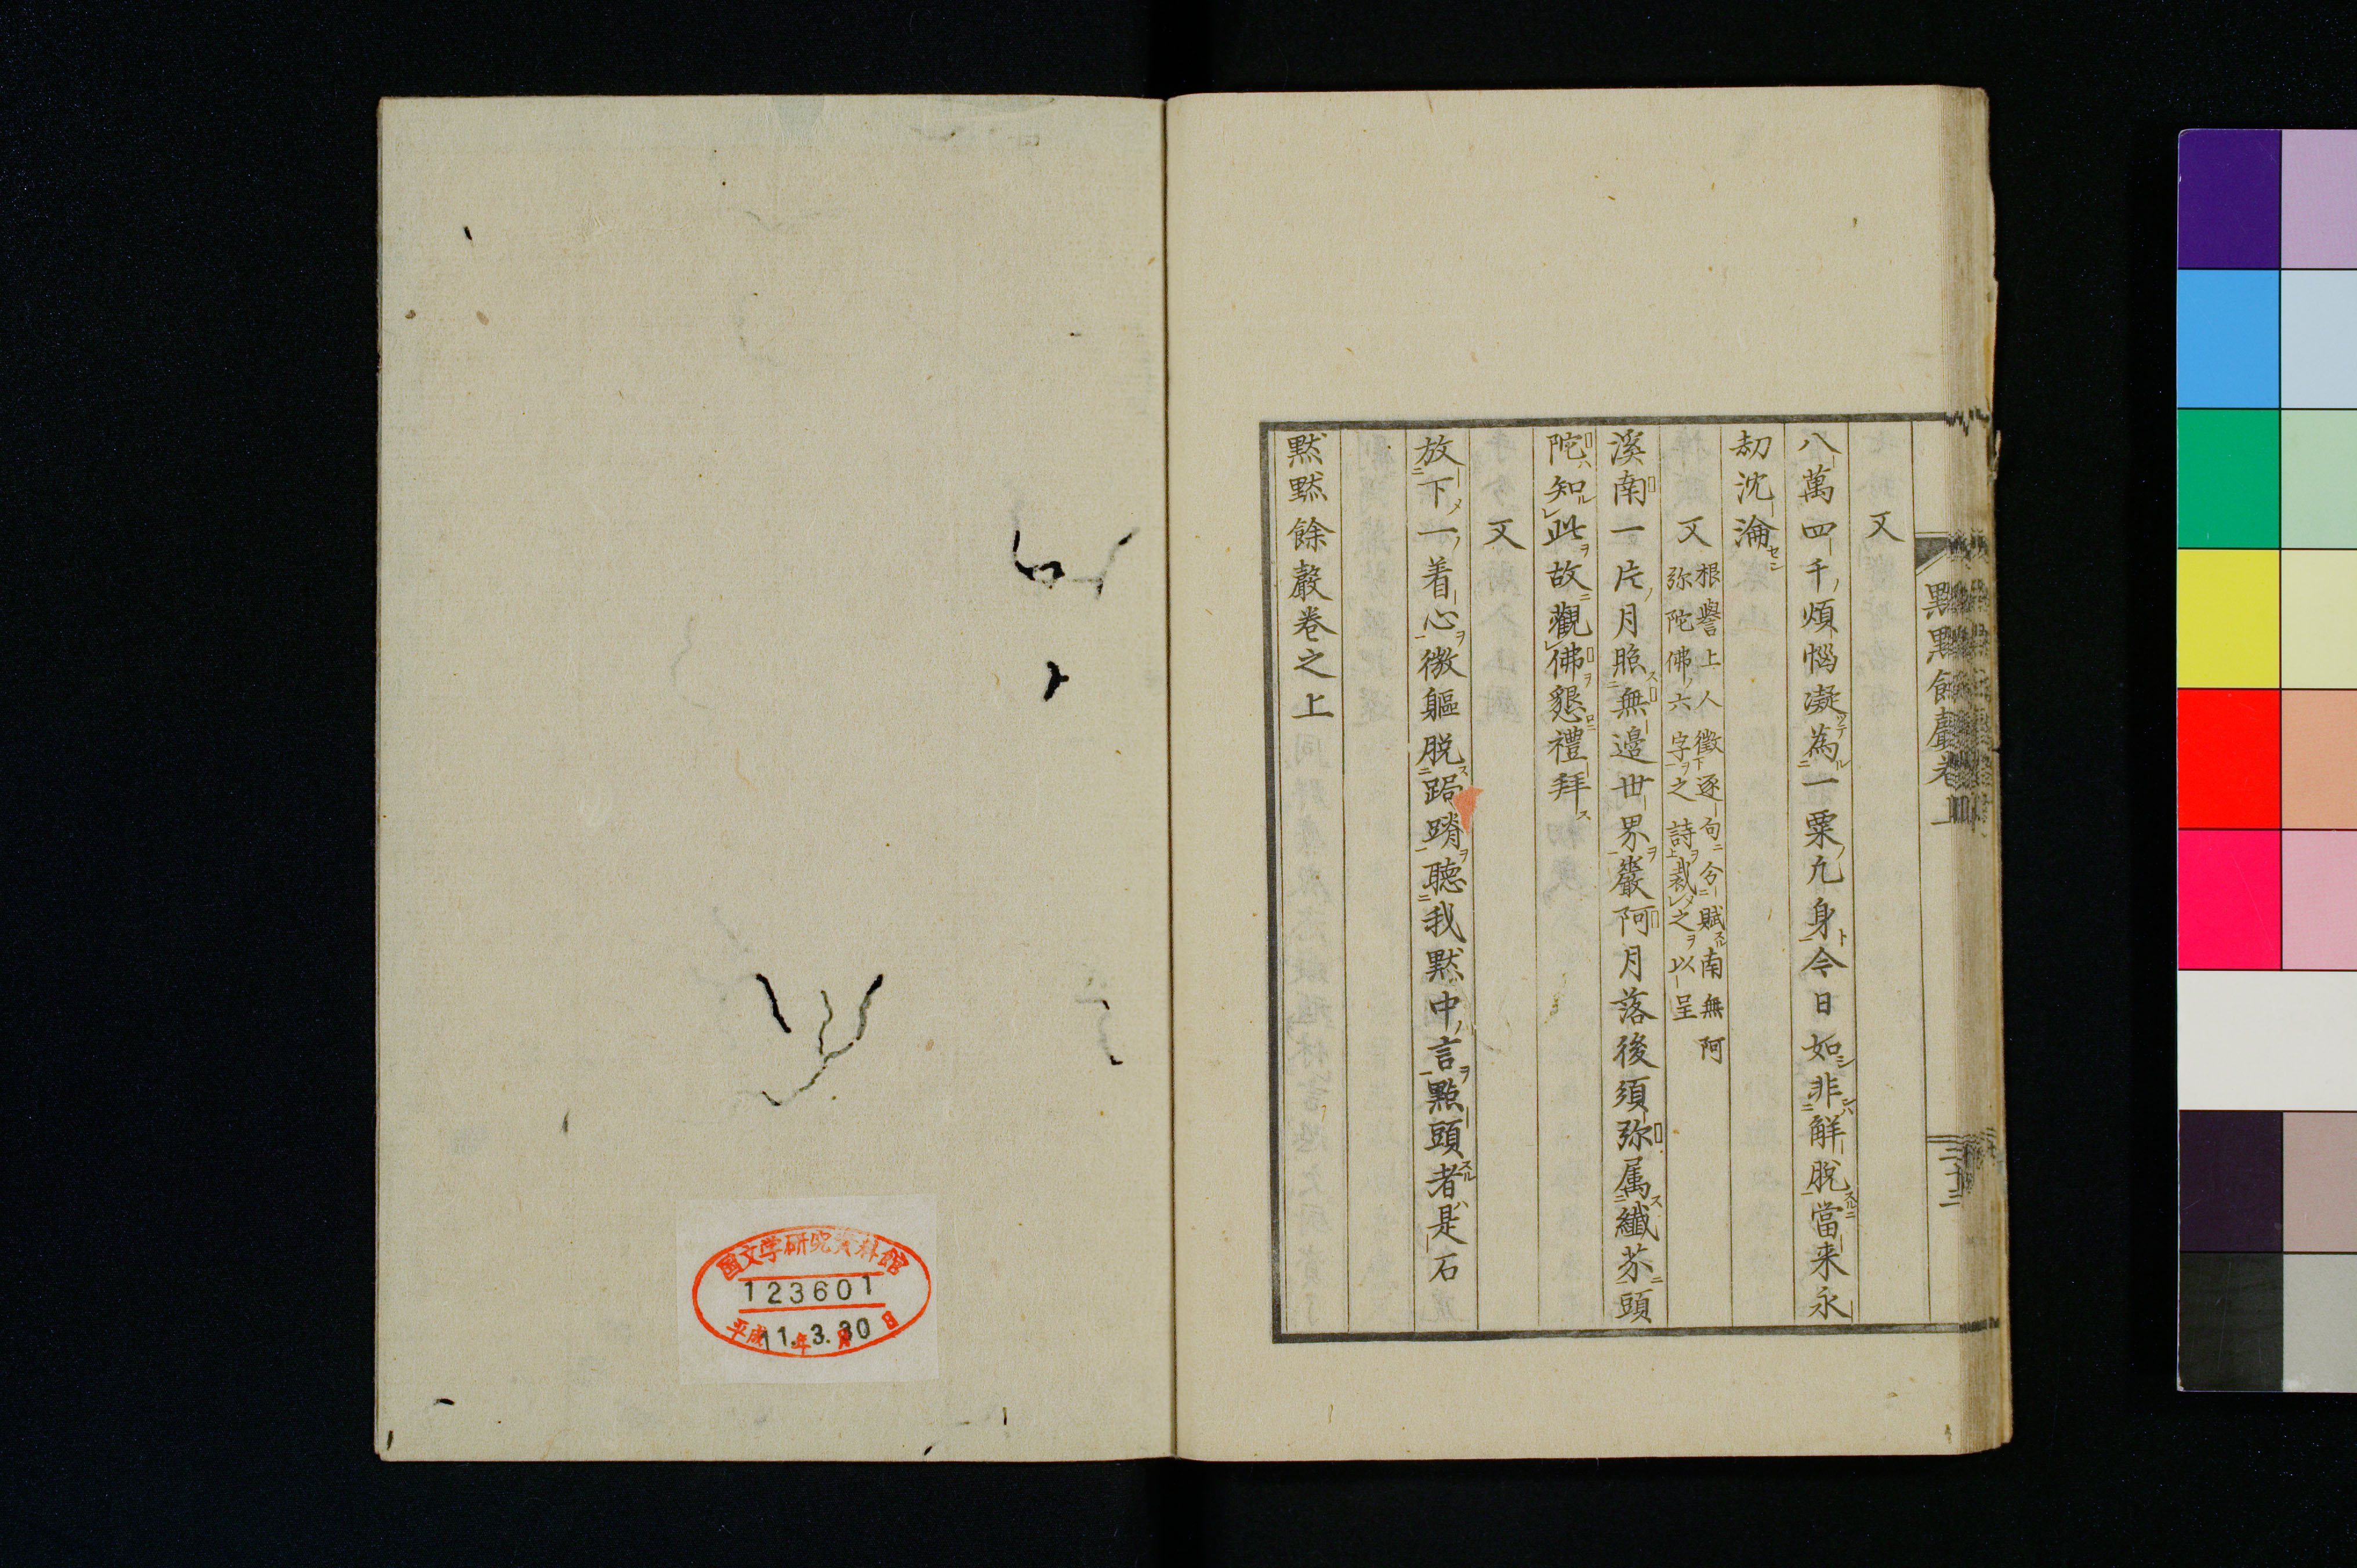 又
八萬四千煩惱凝為一粟凢身今日如非解脱當来永
刧沈淪
又 根譽上人徵逐句令賦南無阿
弥陀佛六字之詩裁之以呈
溪南一片月照無邉世界巖阿月落後須弥属纖芥頭
陀知此故觀佛懇禮拜
又
放下一着心微軀脱跼蹐聴我黙中言點頭者是石
黙黙餘聲卷之上
国文学研究資料館
123601
平成11年3月30日